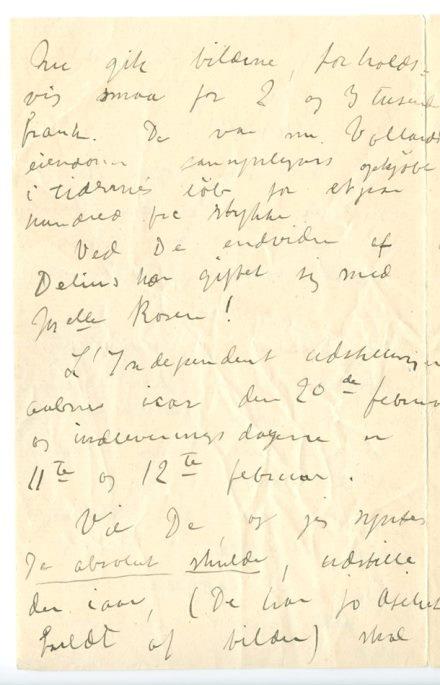 Nu gik bilderne, forholds-
vis smaa for 2 og 3 tusend
frank. De var nu Vollards
eiendom opkjøbt
i tidernes løb for et par
hundred frc stykke
Ved De endvidere at
Delius har giftet sig med
Mselle Rosen!
L'Independent udstillingen
aabnes iaar den 20de februar
og indleveringsdagene er
11te og 12te februar.
Vil De, og jeg syntes
De absolut skulde, udstille
der iaar, (De har jo Ateliet
fuldt af bilder) skal